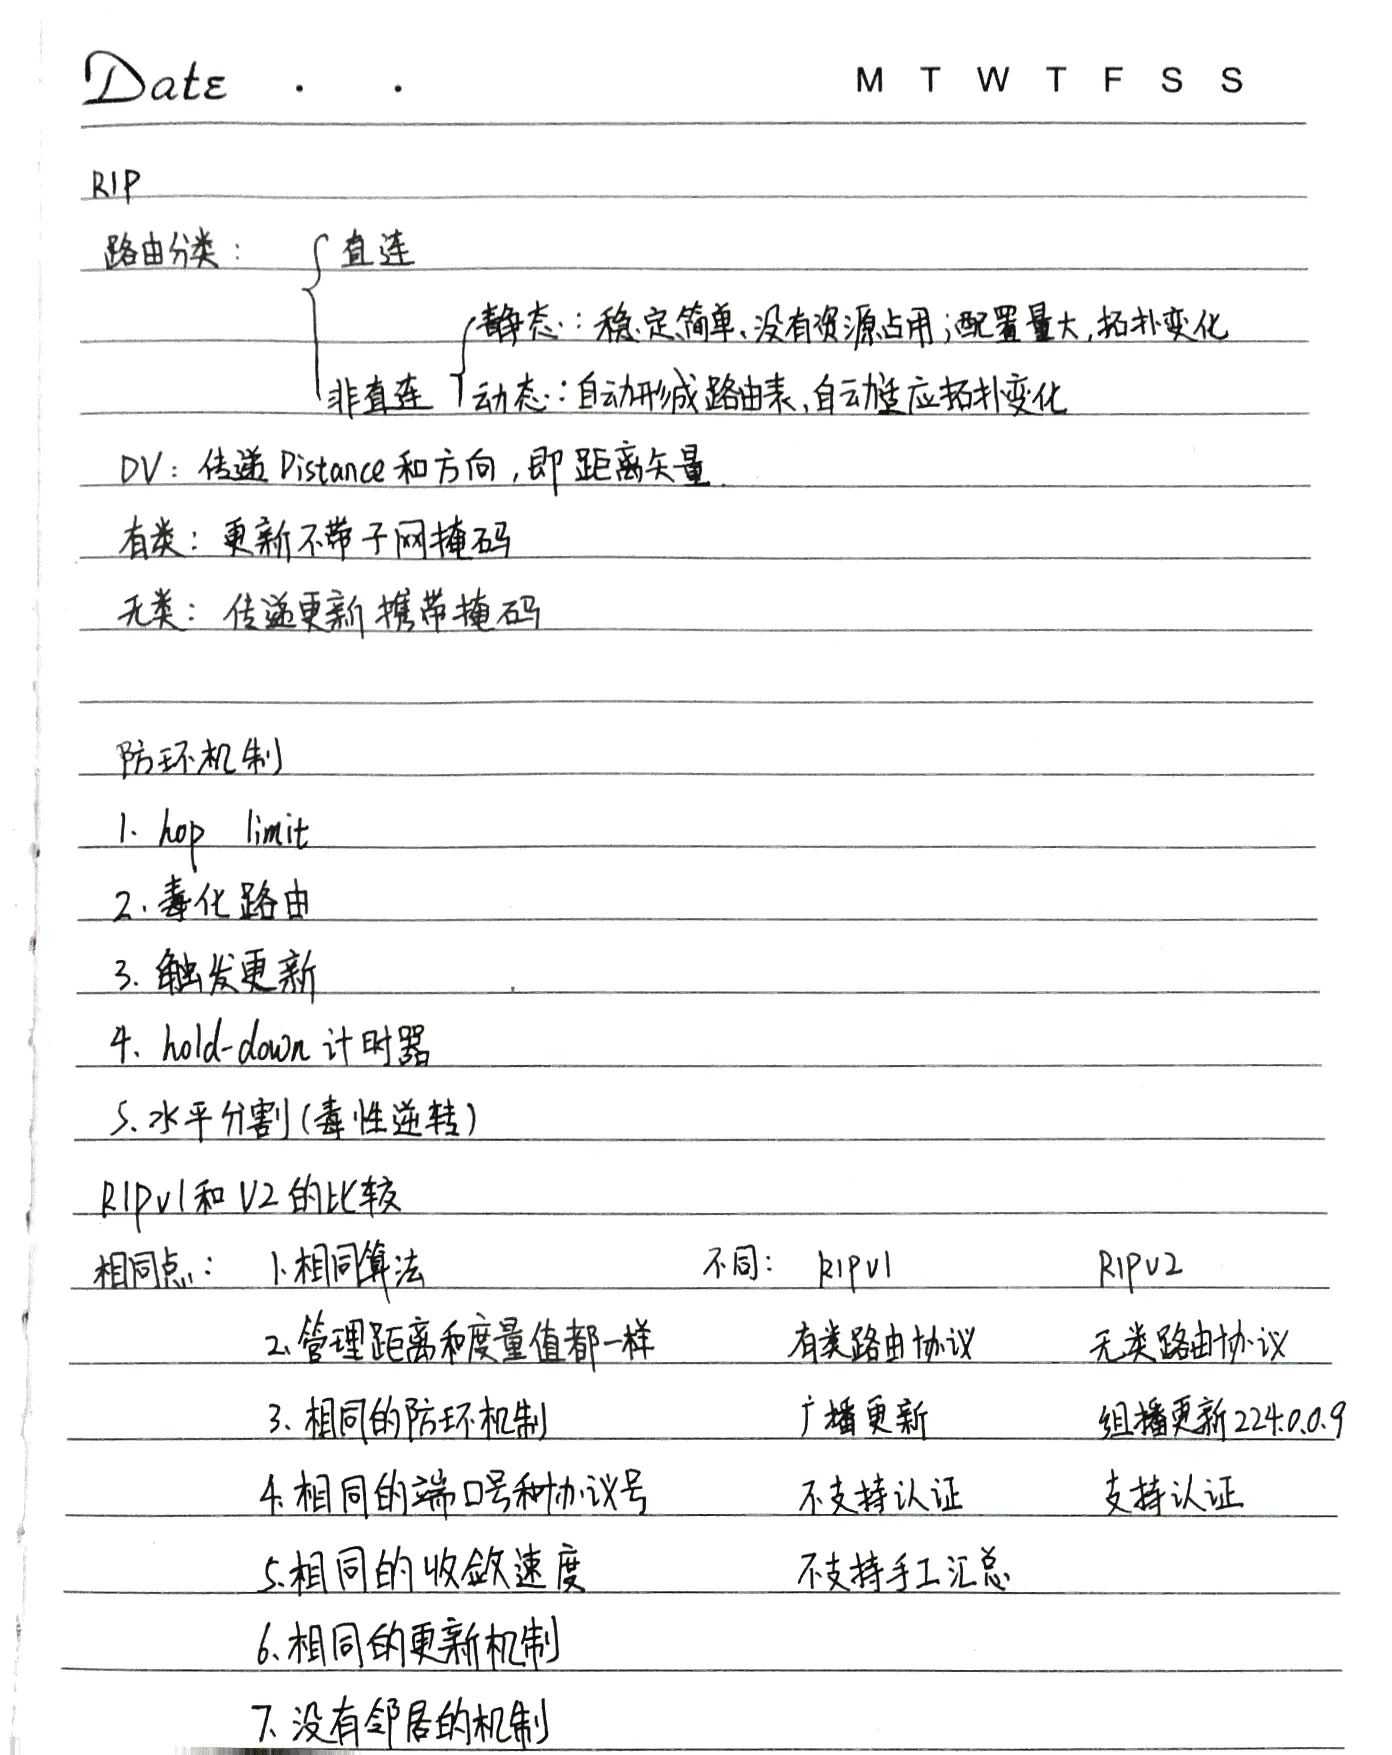 Date . . M T W T F S S
RIP
路由分类: 直连
静态: 稳定,简单、没有资源占用;配置量大,拓扑变化
非直连 动态: 自动形成路由表,自动适应拓扑变化
DV: 传递Distance和方向,即距离矢量.
有类: 更新不带子网掩码
无类: 传递更新携带掩码
防环机制
1. hop limit
2. 毒化路由
3. 触发更新
4. hold-down 计时器
5. 水平分割(毒性逆转)
RIPv1和V2的比较
相同点: 1.相同算法 不同: RIPv1 RIPv2
2.管理距离和度量值都一样 有类路由协议 无类路由协议
3. 相同的防环机制 广播更新 组播更新224.0.0.9
4.相同的端口号和协议号 不支持认证 支持认证
5.相同的收敛速度 不支持手工汇总
6.相同的更新机制
7.没有邻居的机制